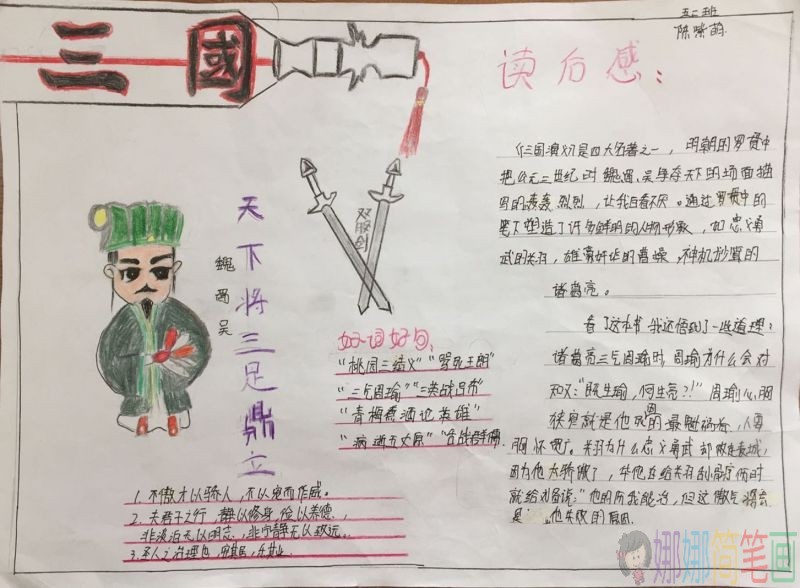 五二班
陈嗦萌
三國
读后感:
《三国演义》是四大名著之一，明朝的罗贯中
把公元三世纪时魏、蜀、吴争夺天下的场面描
写的轰轰烈烈，让我百看不厌。通过罗贯中的
笔下塑造了许多鲜明的人物形象，如忠义勇
武的关羽，雄豪奸诈的曹操，神机妙算的
诸葛亮。
看了这本书我还悟到了一些道理:
诸葛亮三气周瑜时，周瑜为什么会对
知义:"既生瑜，何生亮?!"周瑜心胸
狭窄就是他的最
胸怀吧。关羽为什么忠义勇武却败走麦城，
因为他太骄傲了，华佗在给关羽刮骨疗伤时
就给刘备说:"他的伤我能治，但这傲气
是他失败的原因.
双股剑
天下将三足鼎立
魏蜀吴
好词好句:
"桃园三结义""骂死王朗"
"三气周瑜""三英战吕布"
"青梅煮酒论英雄"
"病逝五丈原""舌战群儒
1.不傲才以骄人，不以宠而作威。
2.夫君子之行 静以修身，俭以养德，
非淡泊无以明志，非宁静无以致远。
3.圣人之治理也，安其居，乐其业.
娜娜简笔画